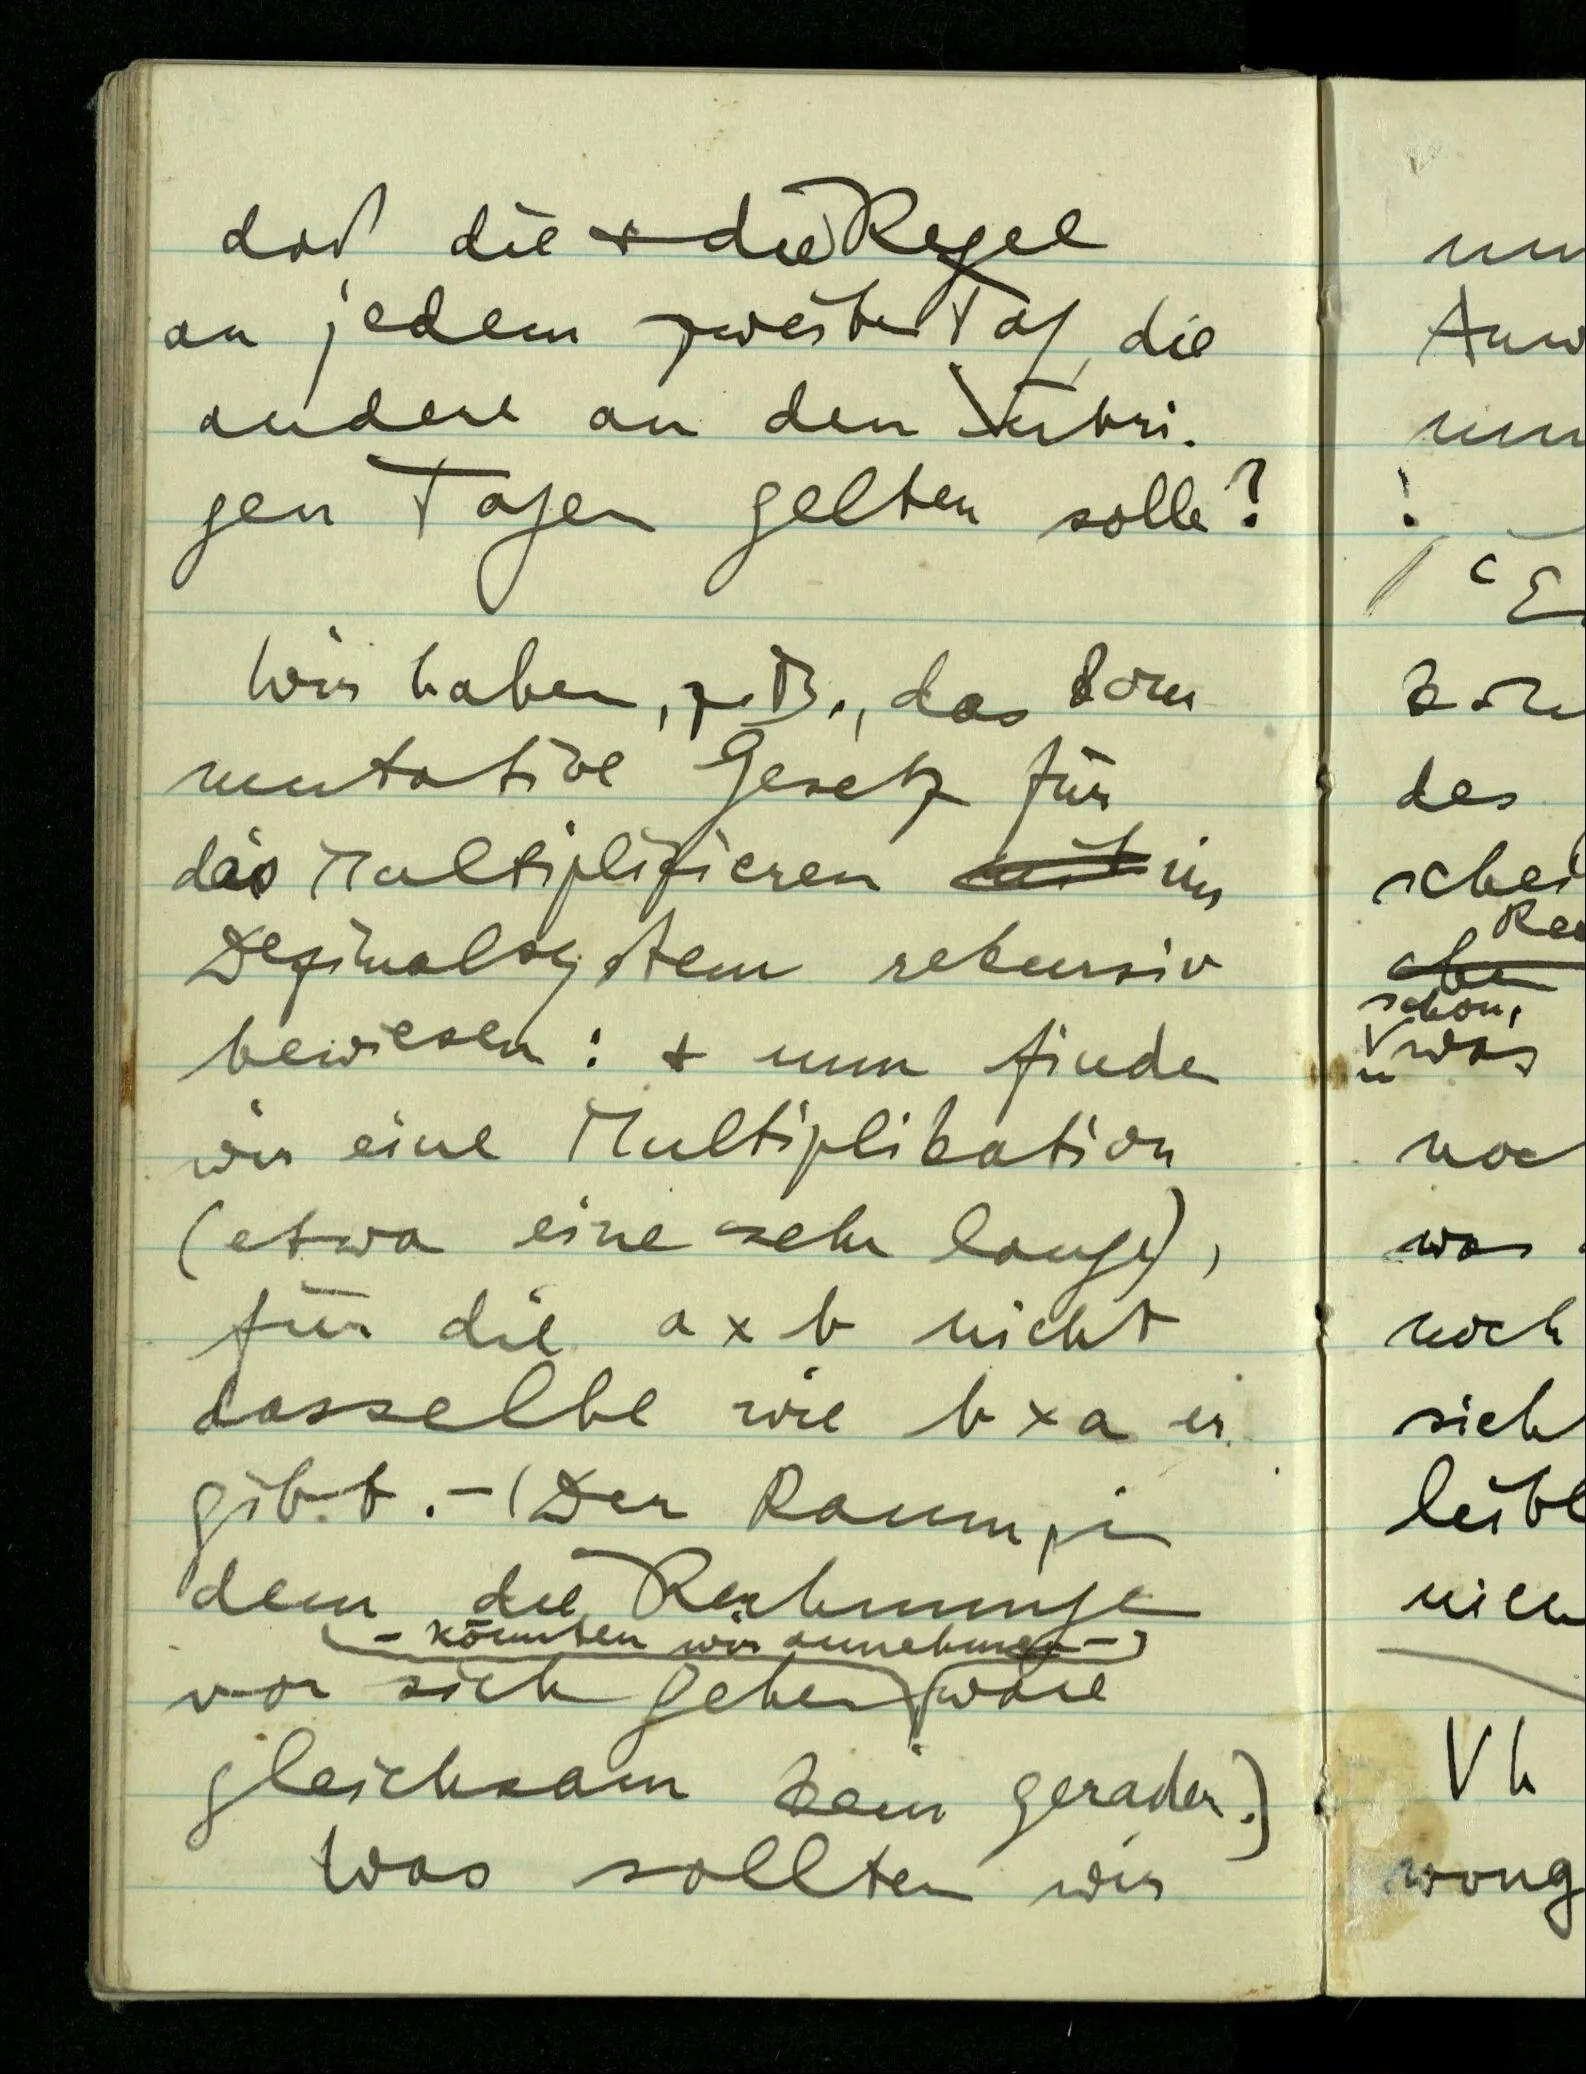 daß die + die Regel
an jedem zweiten Tag, die
andere an den übri-
gen Tagen gelten solle?
Wir haben, z.B., das kom
mutative Gesetz für
das Multiplizieren mit im
Dezimalsystem rekursiv
bewiesen: + nun finden
wir eine Multiplikation
(etwa eine sehr lange),
für die a × b nicht
dasselbe wie b × a er
gibt. – (Der Raum, in
dem die Rechnunge
– könnten wir annehmen –
vor sich gehen, wäre
gleichsam kein gerader.)
Was sollten wir
des
schon,
was
was
noch
Vh